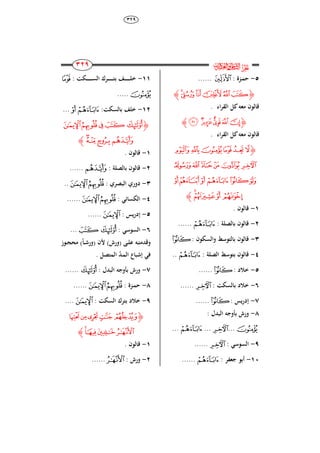 ٣٢٩
٥- حمزة : ٱلْأَذَلِّينَ ......
﴿ كَتَبَ ٱللَّهُ لَأَغْلِبَنَّ أَنَا۠ وَرُسُلِىٓ ﴾
قالون معه كل القراء .
﴿ إِنَّ ٱللَّهَ قَوِىٌّ عَزِيزٌ ﴾
قالون معه كل القراء .
﴿ لَّا تَجِدُ قَوْمًا يُؤْمِنُونَ بِٱللَّهِ وَٱلْيَوْمِ
ٱلْءَاخِرِ يُوَآدُّونَ مَنْ حَآدَّ ٱللَّهَ وَرَسُولَهُۥ
وَلَوْ كَانُوٓا۟ ءَابَآءَهُمْ أَوْ أَبْنَآءَهُمْ أَوْ
إِخْوَٰنَهُمْ أَوْ عَشِيرَتَهُمْ ﴾
١- قالون .
٢- قالون بالصلة : ءَابَآءَهُمْ ......
٣- قالون بالتوسط والسكون : كَانُوٓا۟
٤- قالون بتوسط الصلة : ءَابَآءَهُمْ ..
٥- خلاد : كَانُوٓا۟ ......
٦- خلاد بالسكت : ٱلْءَاخِرِ ......
٧- إدريس : كَانُوٓا۟ ......
٨- ورش بأوجه البدل :
يُؤْمِنُونَ ... ٱلْءَاخِرِ ... ءَابَآءَهُمْ ...
٩- السوسي : ٱلْءَاخِرِ ......
١٠- أبو جعفر : ءَابَآءَهُمْ ......
١١- خلف بترك السكت : قَوْمًا
يُؤْمِنُونَ .....
١٢- خلف بالسكت: ءَابَآءَهُمْ أَوْ ...
﴿ أُو۟لَٰٓئِكَ كَتَبَ فِى قُلُوبِهِمُ ٱلْإِيمَٰنَ
وَأَيَّدَهُم بِرُوحٍ مِّنْهُ ﴾
١- قالون .
٢- قالون بالصلة : وَأَيَّدَهُم ......
٣- دوري البصري : قُلُوبِهِمُ ٱلْإِيمَٰنَ ..
٤- الكسائي : قُلُوبِهِمُ ٱلْإِيمَٰنَ ......
٥- إدريس : ٱلْإِيمَٰنَ ......
٦- السوسي : أُو۟لَٰٓئِكَ كَتَبَ ...
وقدمته على (ورش) لأن (ورشاً) محجوز
في إشباع المدّ المتصل .
٧- ورش بأوجه البدل : أُو۟لَٰٓئِكَ ......
٨- حمزة : قُلُوبِهِمُ ٱلْإِيمَٰنَ ......
٩- خلاد بترك السكت : ٱلْإِيمَٰنَ ....
﴿ وَيُدْخِلُهُمْ جَنَّٰتٍ تَجْرِى مِن تَحْتِهَا
ٱلْأَنْهَٰرُ خَٰلِدِينَ فِيهَا ﴾
١- قالون .
٢- ورش : ٱلْأَنْهَٰرُ ......